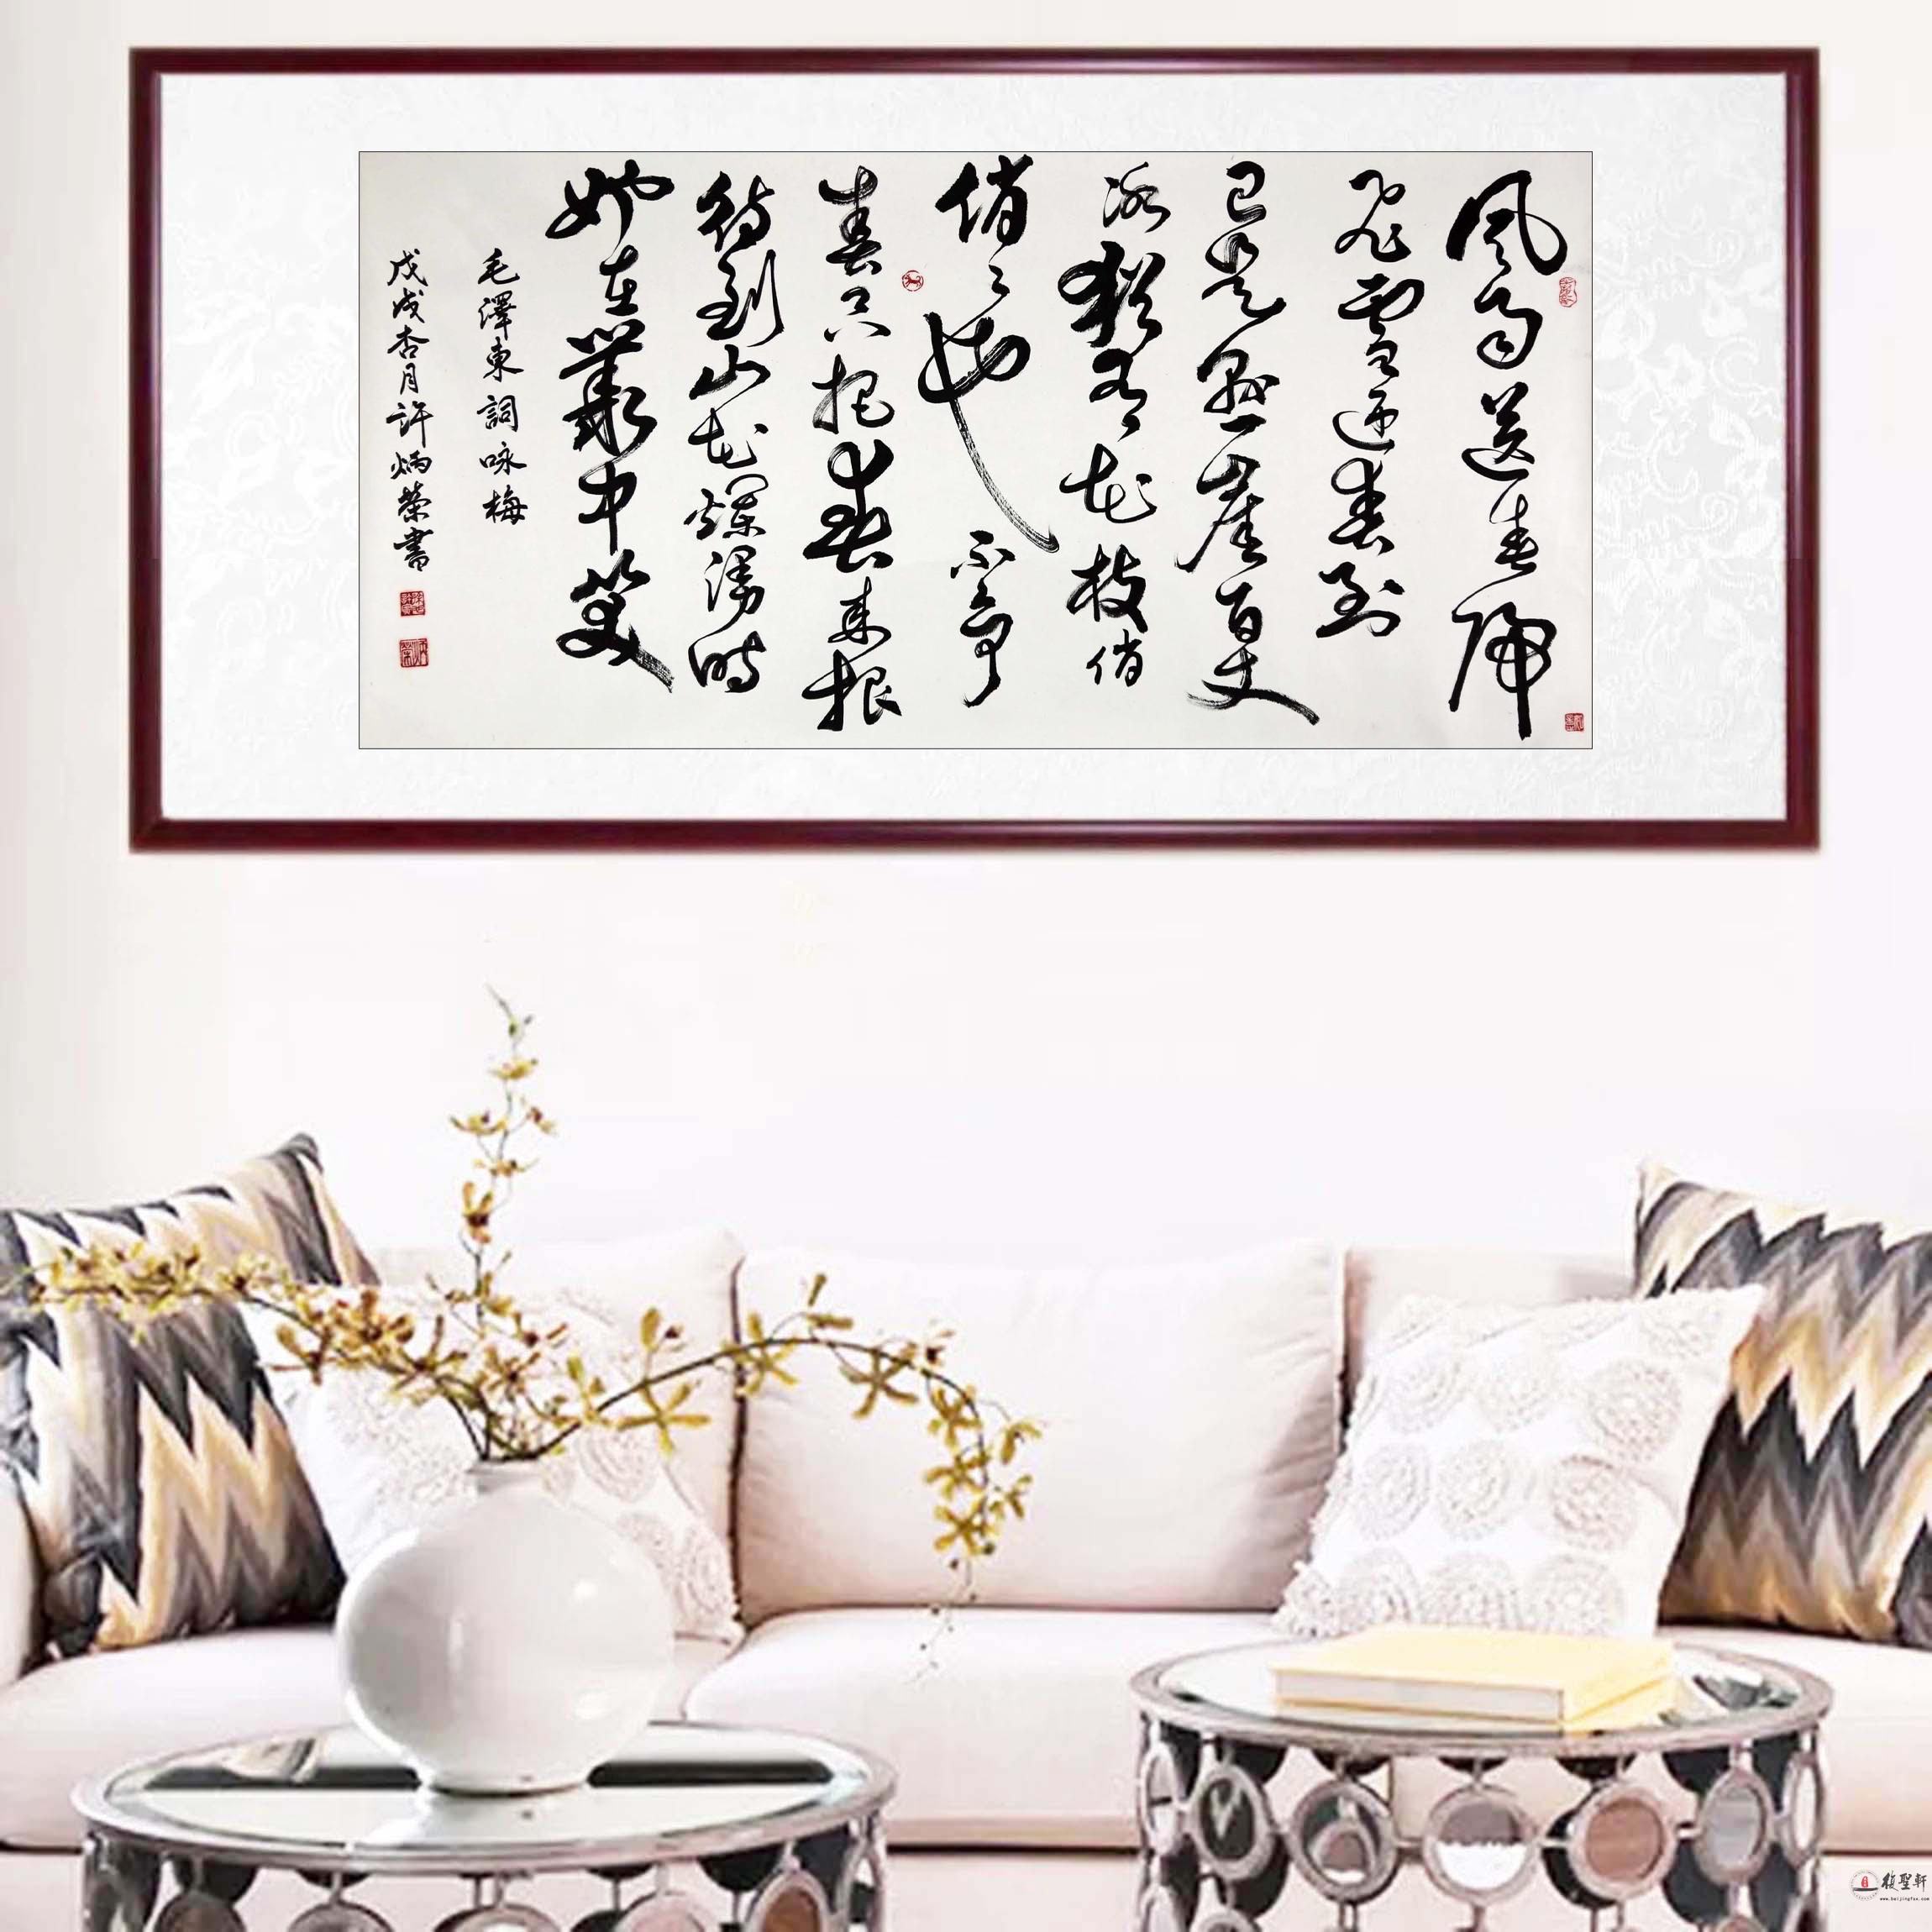 風雨送春歸
飛雪迎春到
已是懸崖百丈
冰猶有花枝俏
俏々也不爭
春只把春來報
待到山花爛漫時
她在叢中笑
毛澤東詞咏梅
戊戌杏月許炳榮書
復聖軒
www.beijingfsx.com